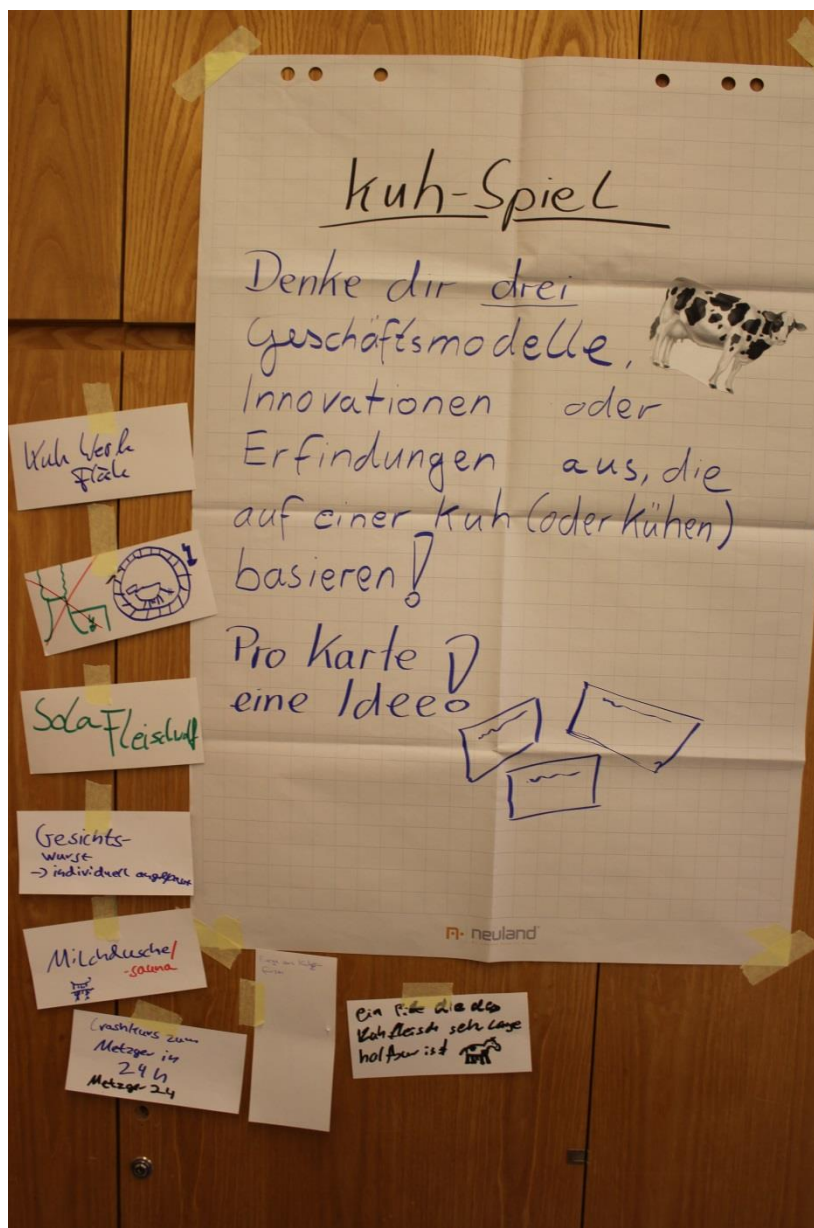 Kuh-Spiel
Denke dir drei
Geschäftsmodelle,
Innovationen oder
Erfindungen aus, die
auf einer Kuh (oder Kühen)
basieren!
Pro Karte
eine Idee!
neuland
Kuh Werbe
Sola Fleischwolf
Gesichts-
wurst
→ individuell
Milchdusche/
-sauna
Crashkurs zum
Metzger in
24 h
Metzger 24
ein die das
Kuhfleisch sehr lange
haltbar ist